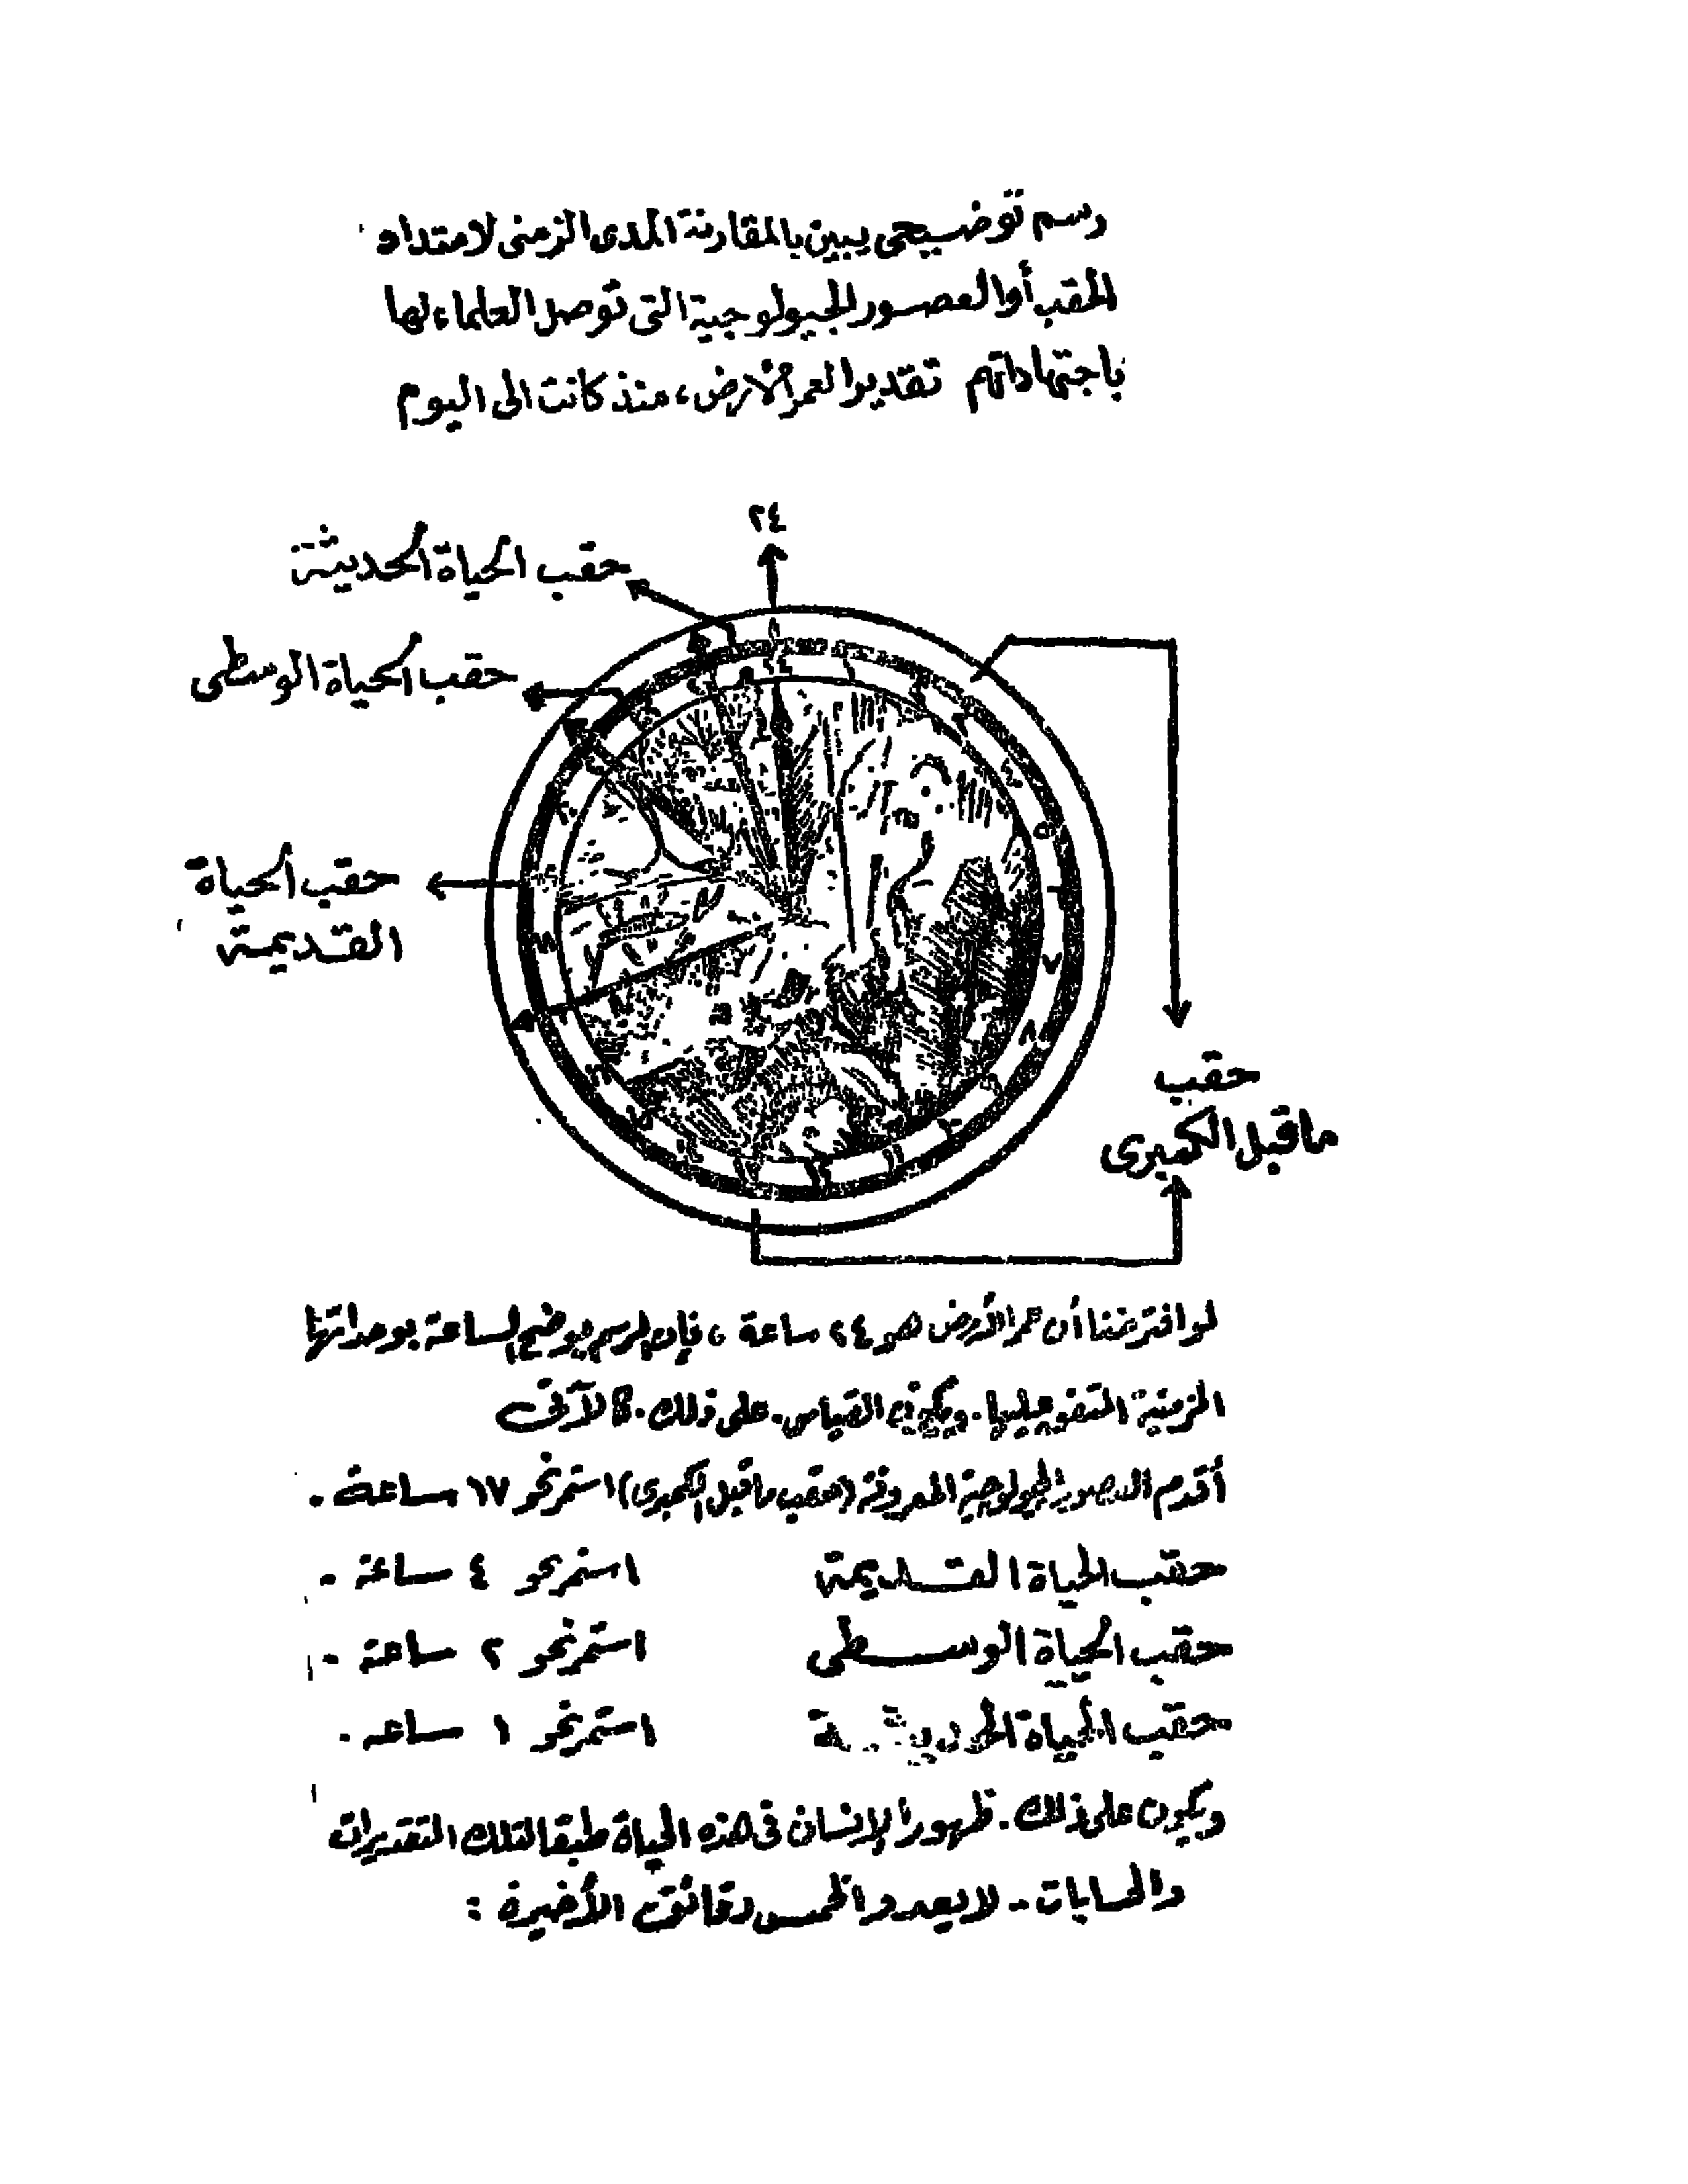 رسم توضيحى يبين بالمقارنة المدى الزمنى لامتداد
الحقب أوالعصور الجيولوجية التى توصل العلماء لها
باجتهاداتهم تقديرا لعمر الأرض، منذ كانت الى اليوم
٢٤
حقب الحياة الحديثة
حقب الحياة الوسطى
حقب الحياة
القديمة
حقب
ماقبل الكمبرى
لو افترضنا أن عمر الأرض هو ٢٤ ساعة، فإن الرسم يوضح الساعة بوحداتها
الزمنية المتفق عليها. القياس. على ذلك. كالآتى
أقدم العصور الجيولوجية المعروفة (حقب ماقبل الكمبرى) استمر نحو ١٧ ساعة.
حقب الحياة القديمة استمر نحو ٤ ساعة.
حقب الحياة الوسطى استمر نحو ٢ ساعة.
حقب الحياة الحديثة استمر نحو ١ ساعه.
ويكون على ذلك. ظهور الإنسان فى هذه الحياة طبقا لتلك التقديرات
والحسابات.. لا يعدو الخمس دقائق الأخيرة :